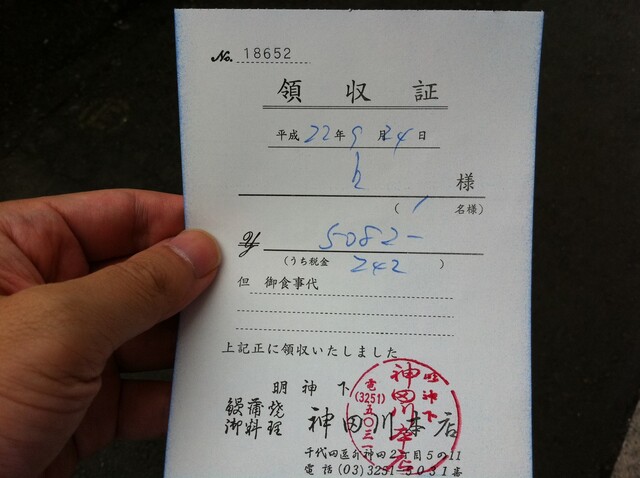 No. 18652
領収証
平成 22年 9月 24日
様
( 1 名様)
¥ 5082-
(うち税金 242 )
但 御食事代
上記正に領収いたしました
明神下
鰻蒲焼
御料理
神田川本店
千代田區外神田2丁目5の11
電話(03)3251-5031番
明神下
神田川本店
電
(3251)
五〇三一